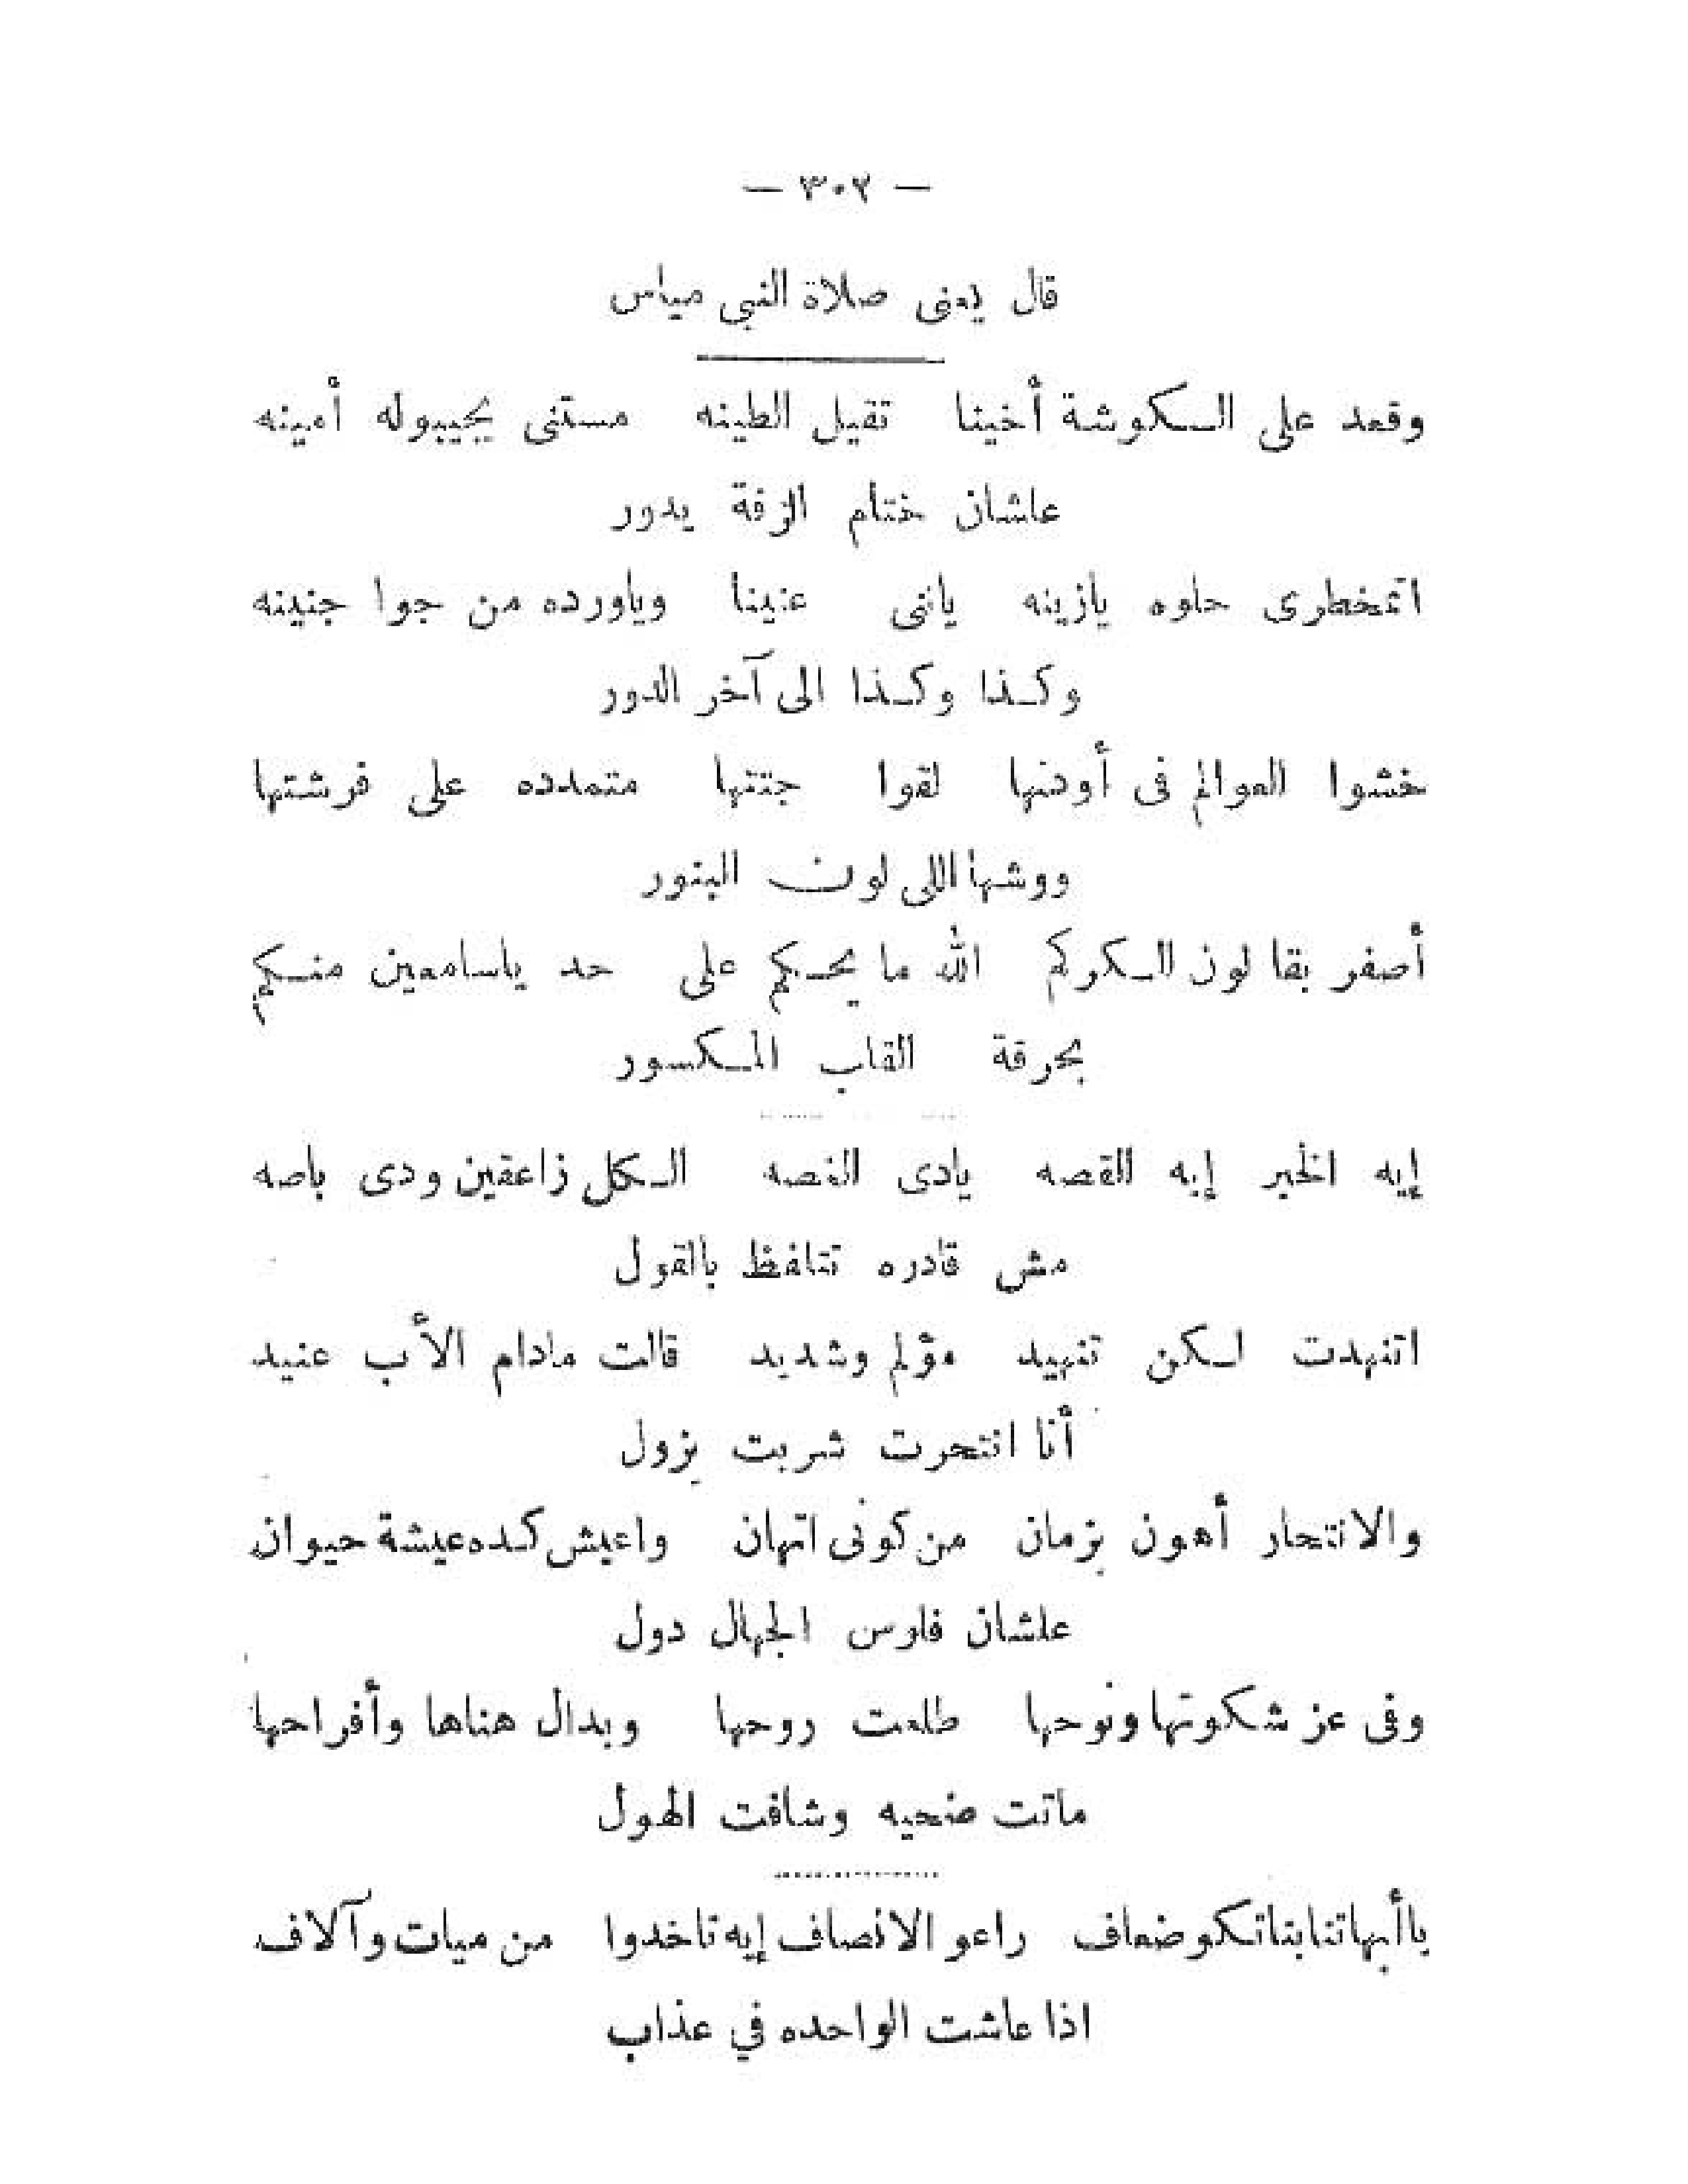 — ٣٠٢ —
قال يعنى صلاة النبى مياس
وقعد على الكوشة أخينا تقيل الطينه مستنى يجيبوله أمينه
عاشان ختام الزفة يدور
اتمخطرى حلوه يازينه يانى عنينا وياورده من جوا جنينه
وكذا وكذا الى آخر الدور
خشوا العوالم فى أوضتها لقوا جتتها متمدده على فرشتها
ووشها اللى لون البنور
أصفر بقا لون الكركم الله ما يحكم على حد ياسامعين منكم
بحرقة القلب المكسور
إيه الخبر إيه القصه يادى الغصه الكل زاعقين ودى باصه
مش قادره تتلفظ بالقول
اتنهدت لكن تنهيد مؤلم وشديد قالت مادام الأب عنيد
أنا انتحرت شربت بزول
والانتحار أهون بزمان من كونى اتهان واعيش كده عيشة حيوان
علشان فلوس الجهال دول
وفى عز شكوتها ونوحها طلعت روحها وبدال هناها وأفراحها
ماتت ضحيه وشافت الهول
ياأبهاتنا بناتكو ضعاف راعو الانصاف إيه تاخدوا من ميات وآلاف
اذا عاشت الواحده في عذاب